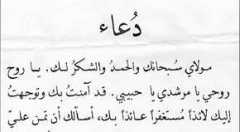 دُعاء
مولاي سُبحانك والحمدُ والشكرُ لك. يا روح
روحي يا مرشدي يا حبيبي. قد آمنتُ بك وتوجهتُ
إليك لائذاً مستغفراً عائذاً بك، أسألك أن تمن عليّ